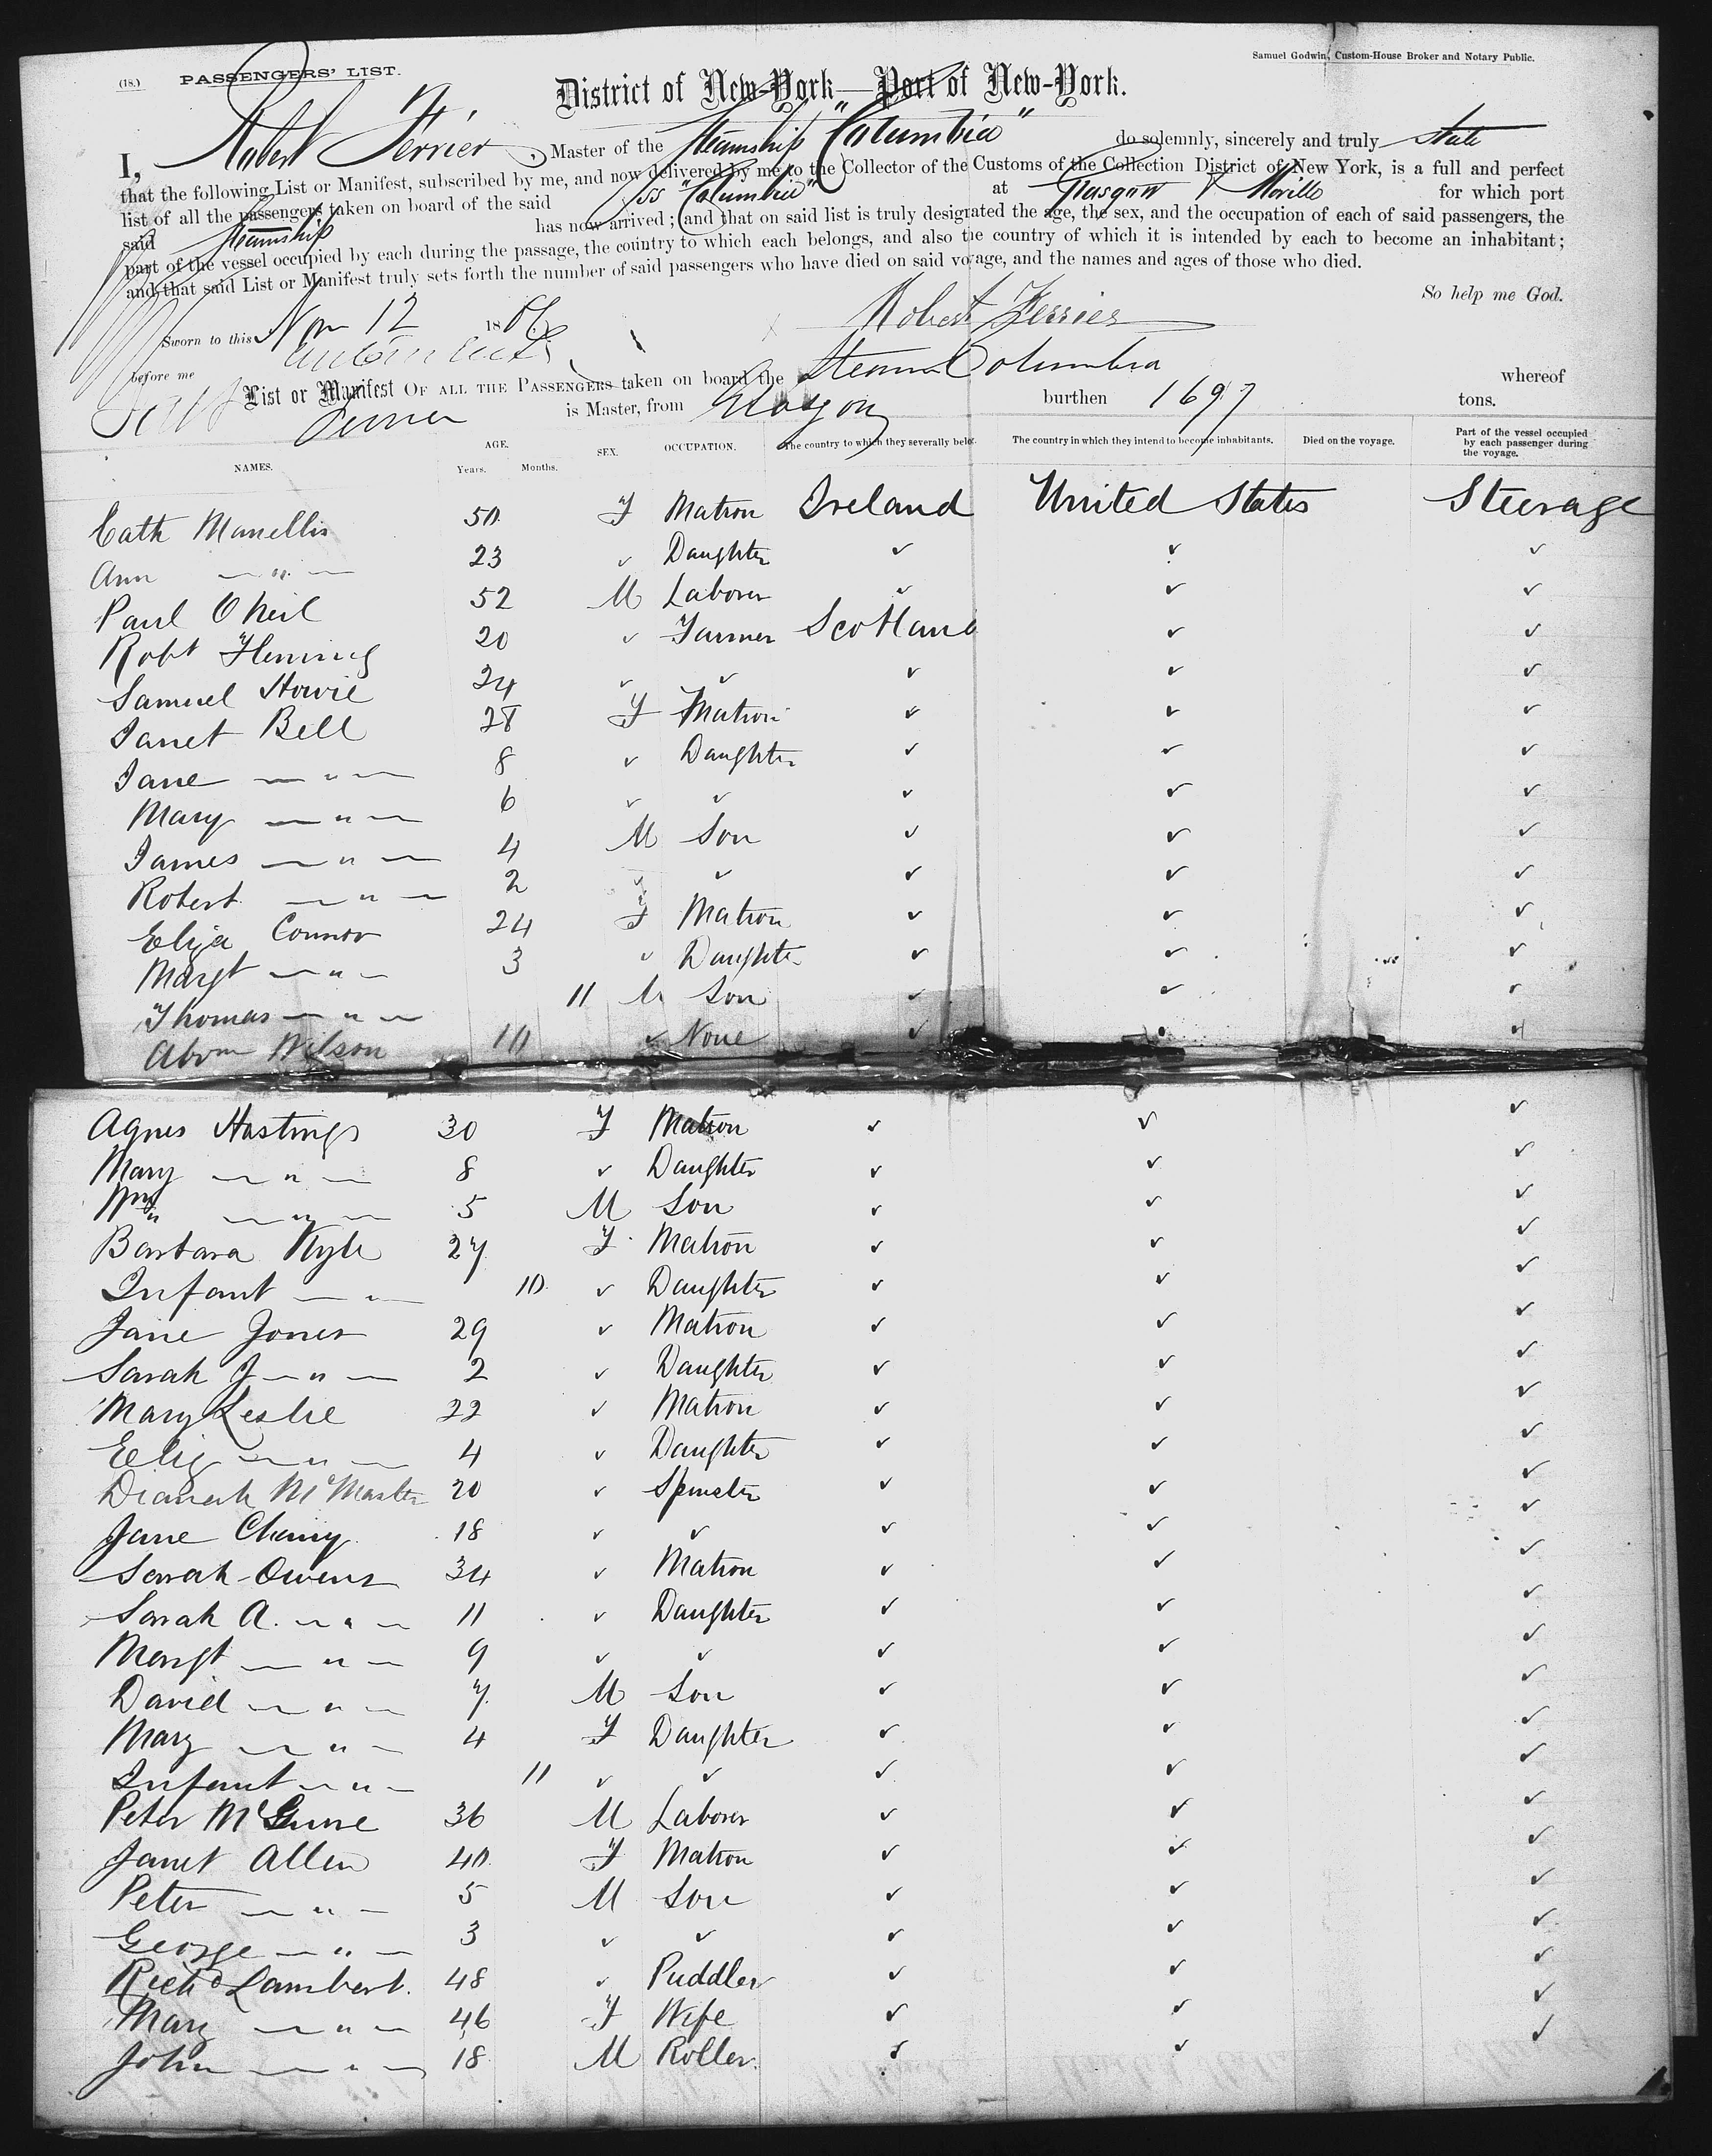 Samuel Godwin, Custom-House Broker and Notary Public.
(18.) PASSENGERS' LIST.
District of New-York—Port of New-York.
I, Robert Ferrier, Master of the Steamship "Columbia" do solemnly, sincerely and truly state
that the following List or Manifest, subscribed by me, and now delivered by me to the Collector of the Customs of the Collection District of New York, is a full and perfect
list of all the passengers taken on board of the said SS "Columbia" at Glasgow & Moville for which port
said Steamship has now arrived; and that on said list is truly designated the age, the sex, and the occupation of each of said passengers, the
part of the vessel occupied by each during the passage, the country to which each belongs, and also the country of which it is intended by each to become an inhabitant;
and that said List or Manifest truly sets forth the number of said passengers who have died on said voyage, and the names and ages of those who died.
So help me God.
Sworn to this Nov 12 18
Robert Ferrier
before me
List or Manifest OF ALL THE PASSENGERS taken on board the Steam Columbia whereof
Ferrier is Master, from Glasgow burthen 1697 tons.
NAMES. AGE. Years. Months. SEX. OCCUPATION. The country to which they severally belo The country in which they intend to become inhabitants. Died on the voyage. Part of the vessel occupied by each passenger during the voyage.
Cath Manellis 50 F Matron Ireland United States Steerage
Ann — " — 23 ✓ Daughter ✓ ✓ ✓
Paul O'Neil 52 M Laborer ✓ ✓ ✓
Robt Fleming 20 ✓ Farmer Scotland ✓ ✓
Samuel Howie 24 ✓ ✓ ✓ ✓ ✓
Janet Bell 28 F Matron ✓ ✓ ✓
Jane — " — 8 ✓ Daughter ✓ ✓ ✓
Mary — " — 6 ✓ ✓ ✓ ✓ ✓
James — " — 4 M Son ✓ ✓ ✓
Robert — " — 2 ✓ ✓ ✓ ✓ ✓
Eliza Connor 24 F Matron ✓ ✓ ✓
Margt — " — 3 ✓ Daughter ✓ ✓ ✓
Thomas — " — 11 M Son ✓ ✓ ✓
Abrm Wilson 10 ✓ None ✓ ✓ ✓
Agnes Hastings 30 F Matron ✓ ✓ ✓
Mary — " — 8 ✓ Daughter ✓ ✓ ✓
Wm — " — 5 M Son ✓ ✓ ✓
Barbara Kyle 27 F Matron ✓ ✓ ✓
Infant — " — 10 ✓ Daughter ✓ ✓ ✓
Jane Jones 29 ✓ Matron ✓ ✓ ✓
Sarah J — " — 2 ✓ Daughter ✓ ✓ ✓
Mary Leslie 22 ✓ Matron ✓ ✓ ✓
Eliz — " — 4 ✓ Daughter ✓ ✓ ✓
Dianah McMaster 20 ✓ Spinster ✓ ✓ ✓
Jane 18 ✓ ✓ ✓ ✓ ✓
Sarah Owens 34 ✓ Matron ✓ ✓ ✓
Sarah A. — " — 11 ✓ Daughter ✓ ✓ ✓
Margt — " — 9 ✓ ✓ ✓ ✓ ✓
David — " — 7 M Son ✓ ✓ ✓
Mary — " — 4 F Daughter ✓ ✓ ✓
Infant — " — 11 ✓ ✓ ✓ ✓ ✓
Peter McGuire 36 M Laborer ✓ ✓ ✓
Janet Allen 40 F Matron ✓ ✓ ✓
Peter — " — 5 M Son ✓ ✓ ✓
George — " — 3 ✓ ✓ ✓ ✓ ✓
Richd Lambert. 48 ✓ Puddler ✓ ✓ ✓
Mary — " — 46 F Wife ✓ ✓ ✓
John — " — 18 M Roller ✓ ✓ ✓